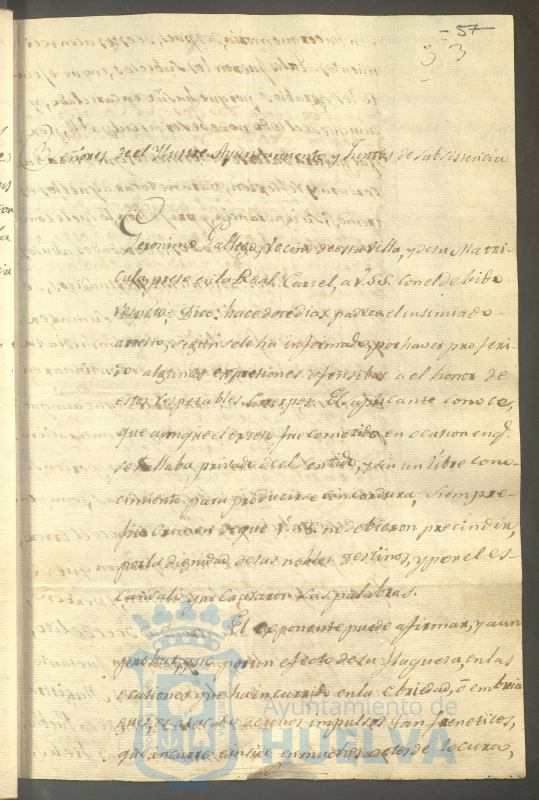 57
33
Señores de el Ilustre Ayuntamiento y Juntas de subsistencia
Geronimo Gallego, Vecino de esta Villa, y de su Matri
cula preso en la Real Carsel, a VSS. con el debido
respecto: Dice: hace doce dias padece el insinuado
arresto, segun se le ha informado, por haver proferi
do algunas expresiones ofensibas a el honor de
estos respetables Cuerpos. El suplicante conoce,
que aunque el exceso fue cometido en ocasion enq.
se hallaba privado de el sentido, y sin un libre cono
cimiento para producirse con cordura; siempre
fue crimen de que V.SS. no dobieron precindir,
por la dignidad de sus nobles destinos, y por el es
candalo que causaron sus palabras.
El exponente puede afirmar, y aun
probar, que por un efecto de su flaquesa, en las
ocasiones que ha incurrido en la ebriedad, ó embria
gues, es atacado de unos impulsos tan freneticos,
que incurre en muchos actos de locura,
Ayuntamiento de
HUELVA